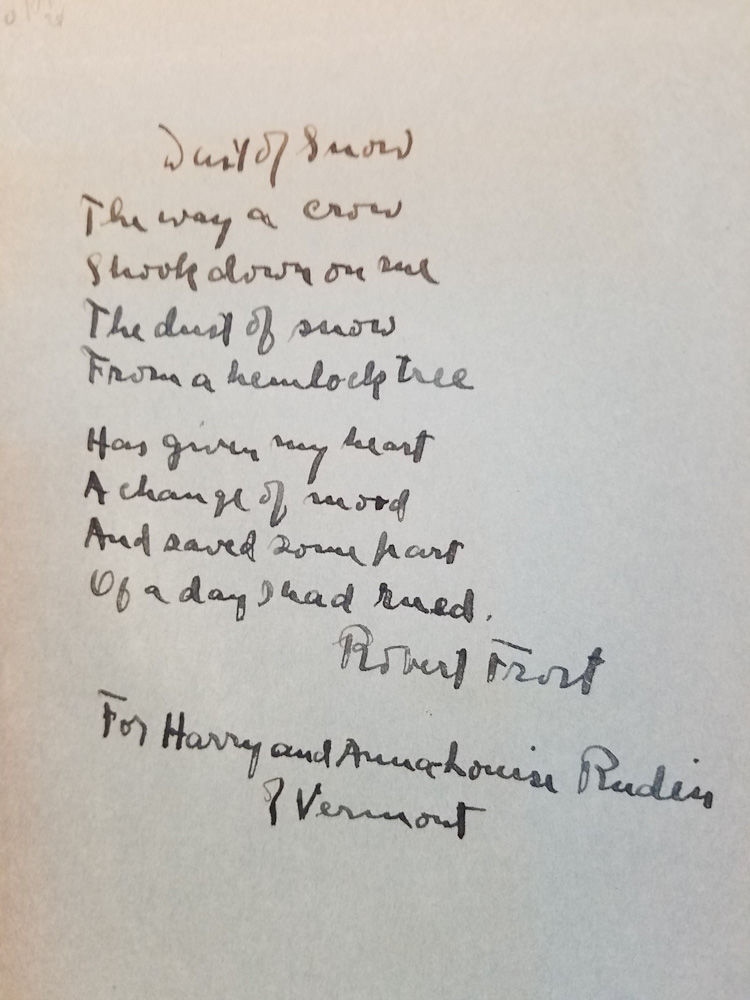 Dust of Snow
The way a crow
Shook down on me
The dust of snow
From a hemlock tree
Has given my heart
A change of mood
And saved some part
Of a day I had rued.
Robert Frost
For Harry and Anna-Louise Rudin
of Vermont